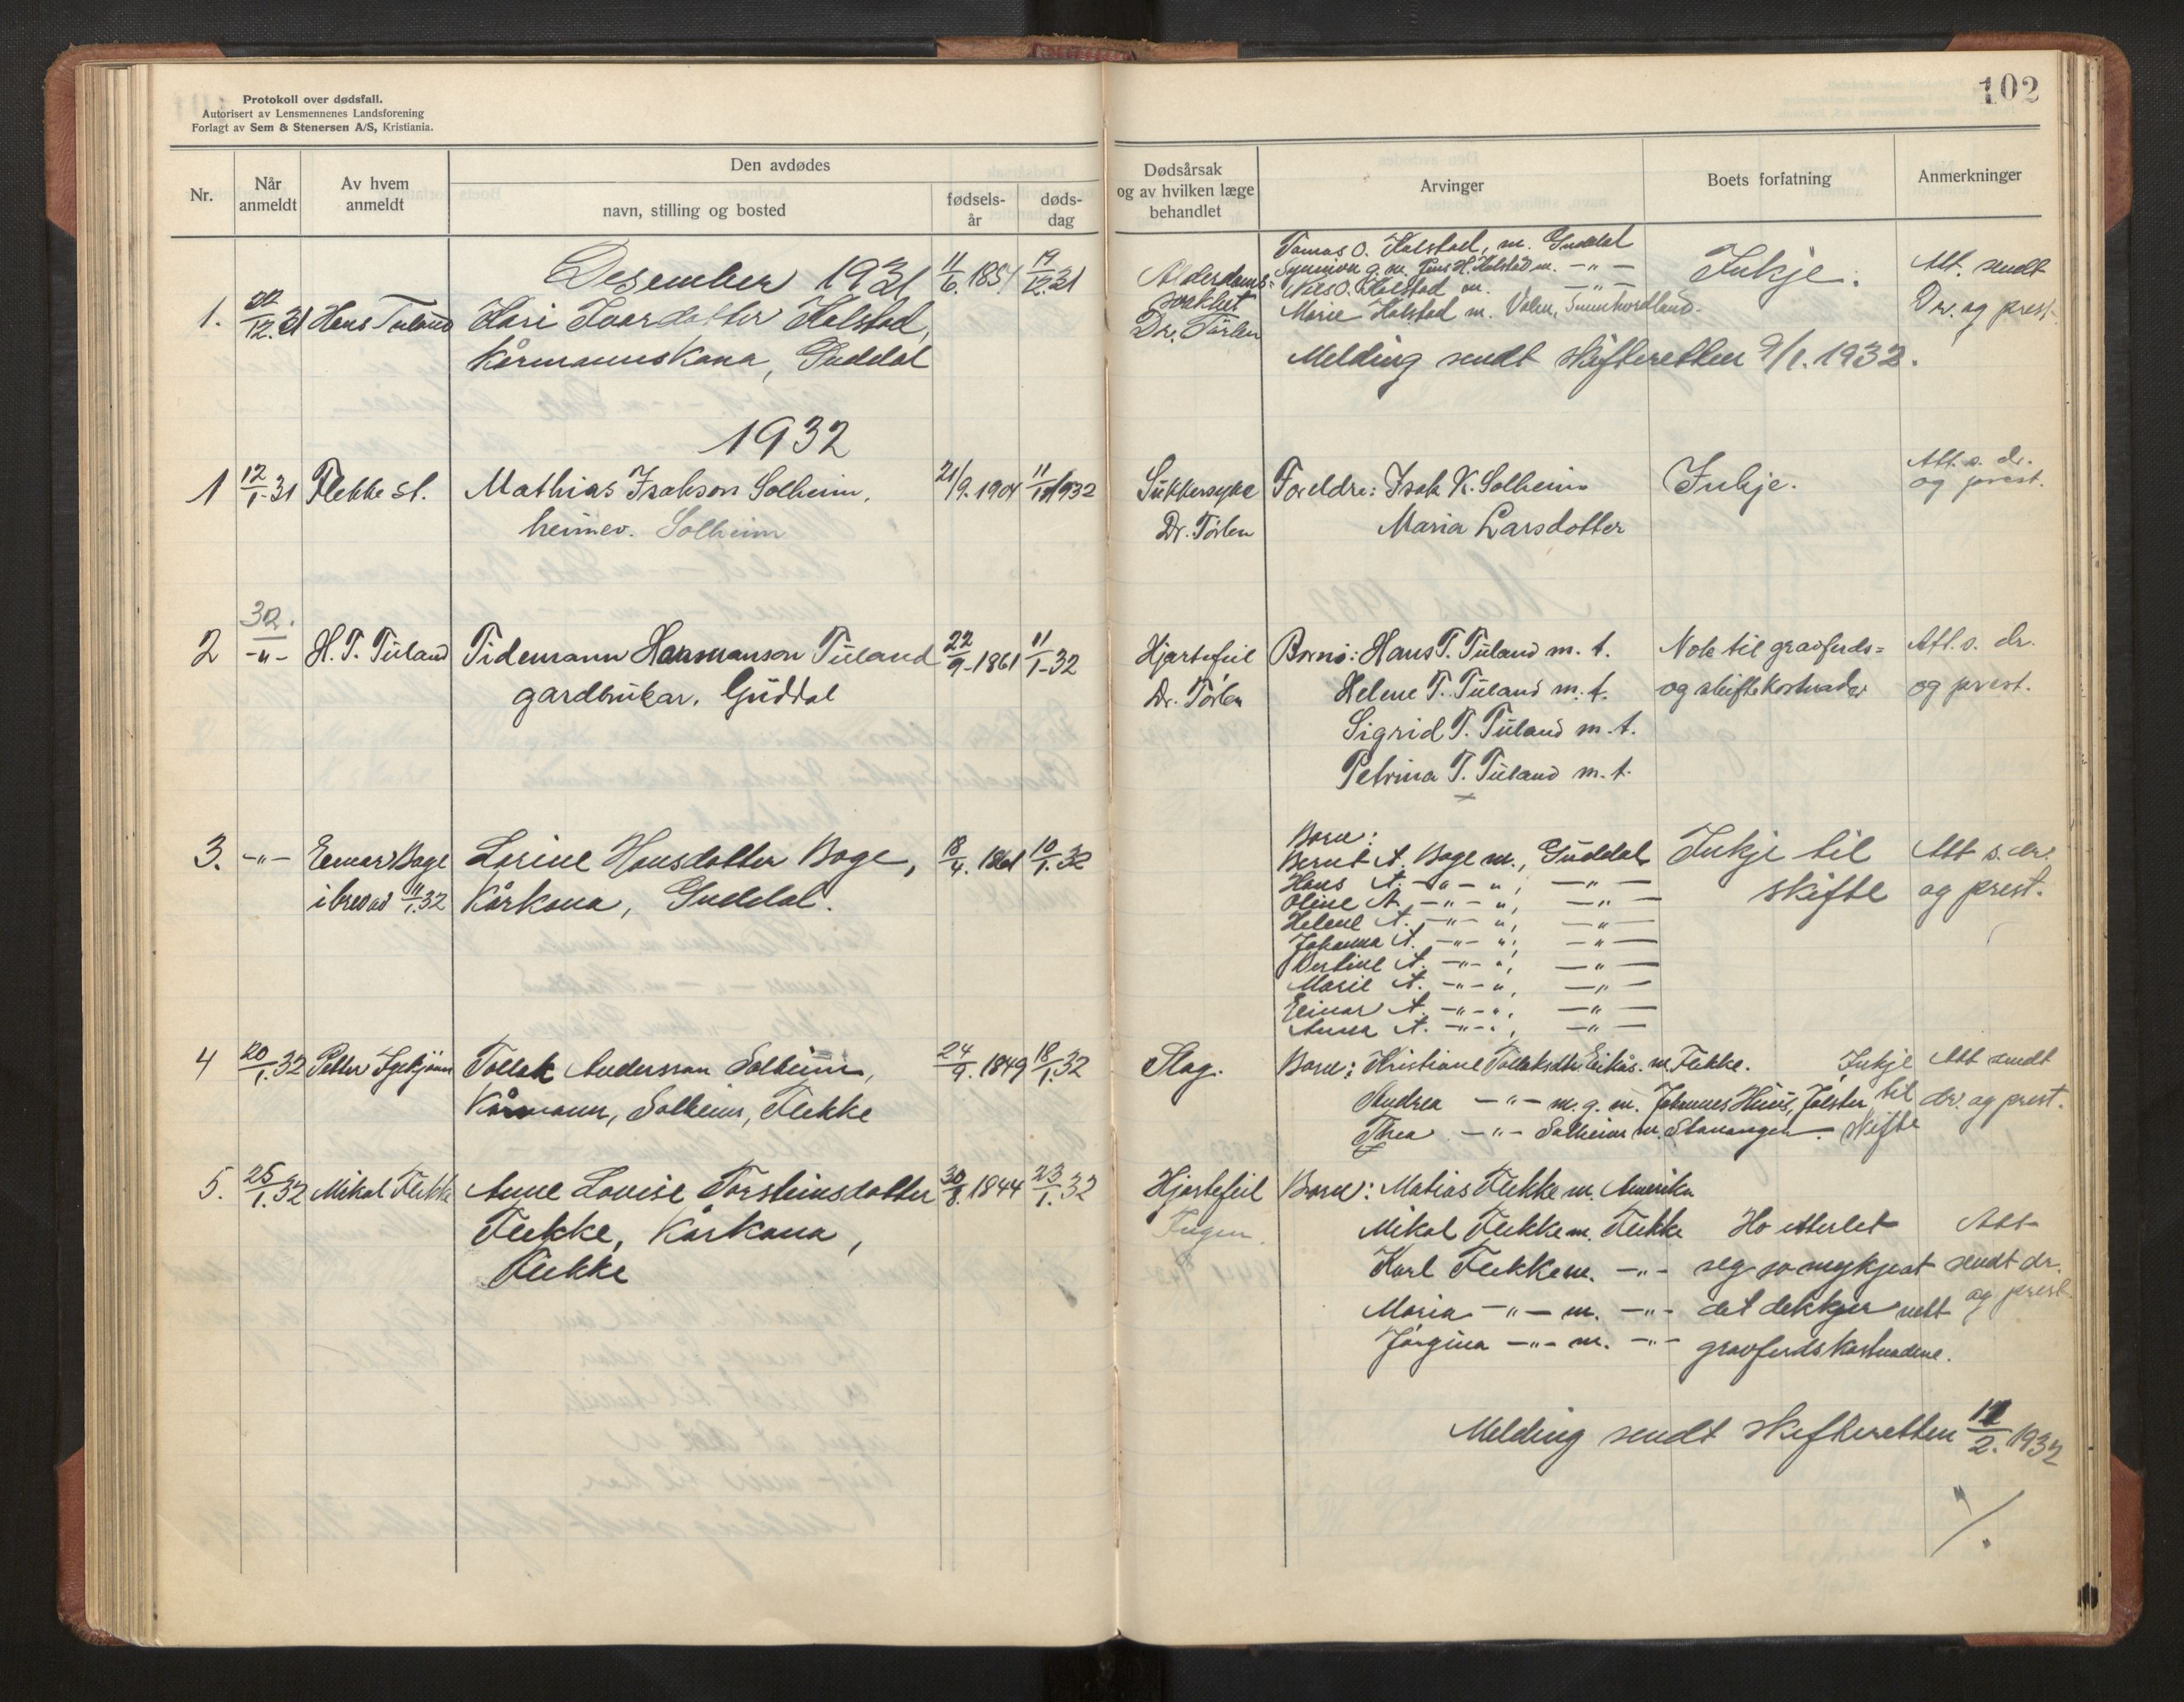 102
Protokoll over dødsfall.
Autorisert av Lensmennenes Landsforening
Forlagt av Sem & Stenersen A/S, Kristiania.
Nr.
Når anmeldt
Av hvem anmeldt
Den avdødes
navn, stilling og bosted
fødsels-år
døds-dag
Dødsårsak og av hvilken læge behandlet
Arvinger
Boets forfatning
Anmerkninger
Desember 1931
1. 22/12.31 Hans Tuland Kari Ivarsdotter Kolstad, 11/6.1851 19/12.31
Kårmannskona, Guddal
Alderdoms-
svekket
Dr. Tørlen
Tomas O. Kolstad, m. Guddal
Synneva g. m. Jens H. Kolstad m. -"-
Nils O. Kolstad m. -"-
Marie Kolstad m. Valen, Sunnhordland.
Inkje.
Att. sendt
Dr. og prest.
Melding sendt skifteretten 9/1.1932.
1932
1 12/1-31 Flekke st. Mathias Isakson Solheim, 21/9.1904 11/1 1932
heimev. Solheim
Sukkersyke
Dr. Tørlen
Foreldre: Isak K. Solheim
Maria Larsdotter
Inkje.
Att. s. dr.
og prest.
32.
2 -"- H. T. Tuland Tidemann Hansmanson Tuland 22/9-1861 11/1-32
gardbrukar. Guddal
Hjartefeil
Dr. Tørlen
Borni: Hans T. Tuland m. t.
Helene T. Tuland m. t.
Sigrid T. Tuland m. t.
Petrina T. Tuland m. t.
Nok til gravferds-
og skiftekostnader
Att. s. dr.
og prest.
3. -"- Einar Boge Lorine Hansdotter Boge, 18/4.1861 10/1.32
i brev av 11/1.32 Kårkona, Guddal.
Born:
Bernt A. Boge m., Guddal
Hans A. -"- ", -"-
Oline A. -"- ", -"-
Helene A. -"- ", -"-
Johanna A. -"- ", -"-
Kirstine A. -"- ", -"-
Marie A. -"- ", -"-
Einar A. -"- ", -"-
Anna A. -"- ", -"-
Inkje til
skifte
Att s. dr.
og prest.
4 20/1.32 Petter Tollak Andersson Solheim, 24/9.1849 18/1.32
Kårmann, Solheim, Flekke
Slag.
Born: Kristiane Tollaksdtr Eikås. m. Flekke.
Andrea -"- m. g. m. Johannes Huus, Jølster
Thea -"- Solheim m. Stavanger.
Inkje
til
skifte
Att sendt
dr. og prest.
5. 25/1.32 Mikal Flekke Anne Lovise Torsteinsdotter 30/8.1844 23/1.32
Flekke, Kårkona,
Flekke
Hjartefeil
Ingen.
Born: Matias Flekke m. Amerika
Mikal Flekke m. Flekke
Karl Flekke m. -"-
Maria -"- m. -"-
Jørgina -"- m. -"-
Ho etterlet
seg so mykje at
det dekkjer nett
gravferdskostnadene.
Att
sendt dr.
og prest.
Melding sendt skifteretten 11/2. 1932